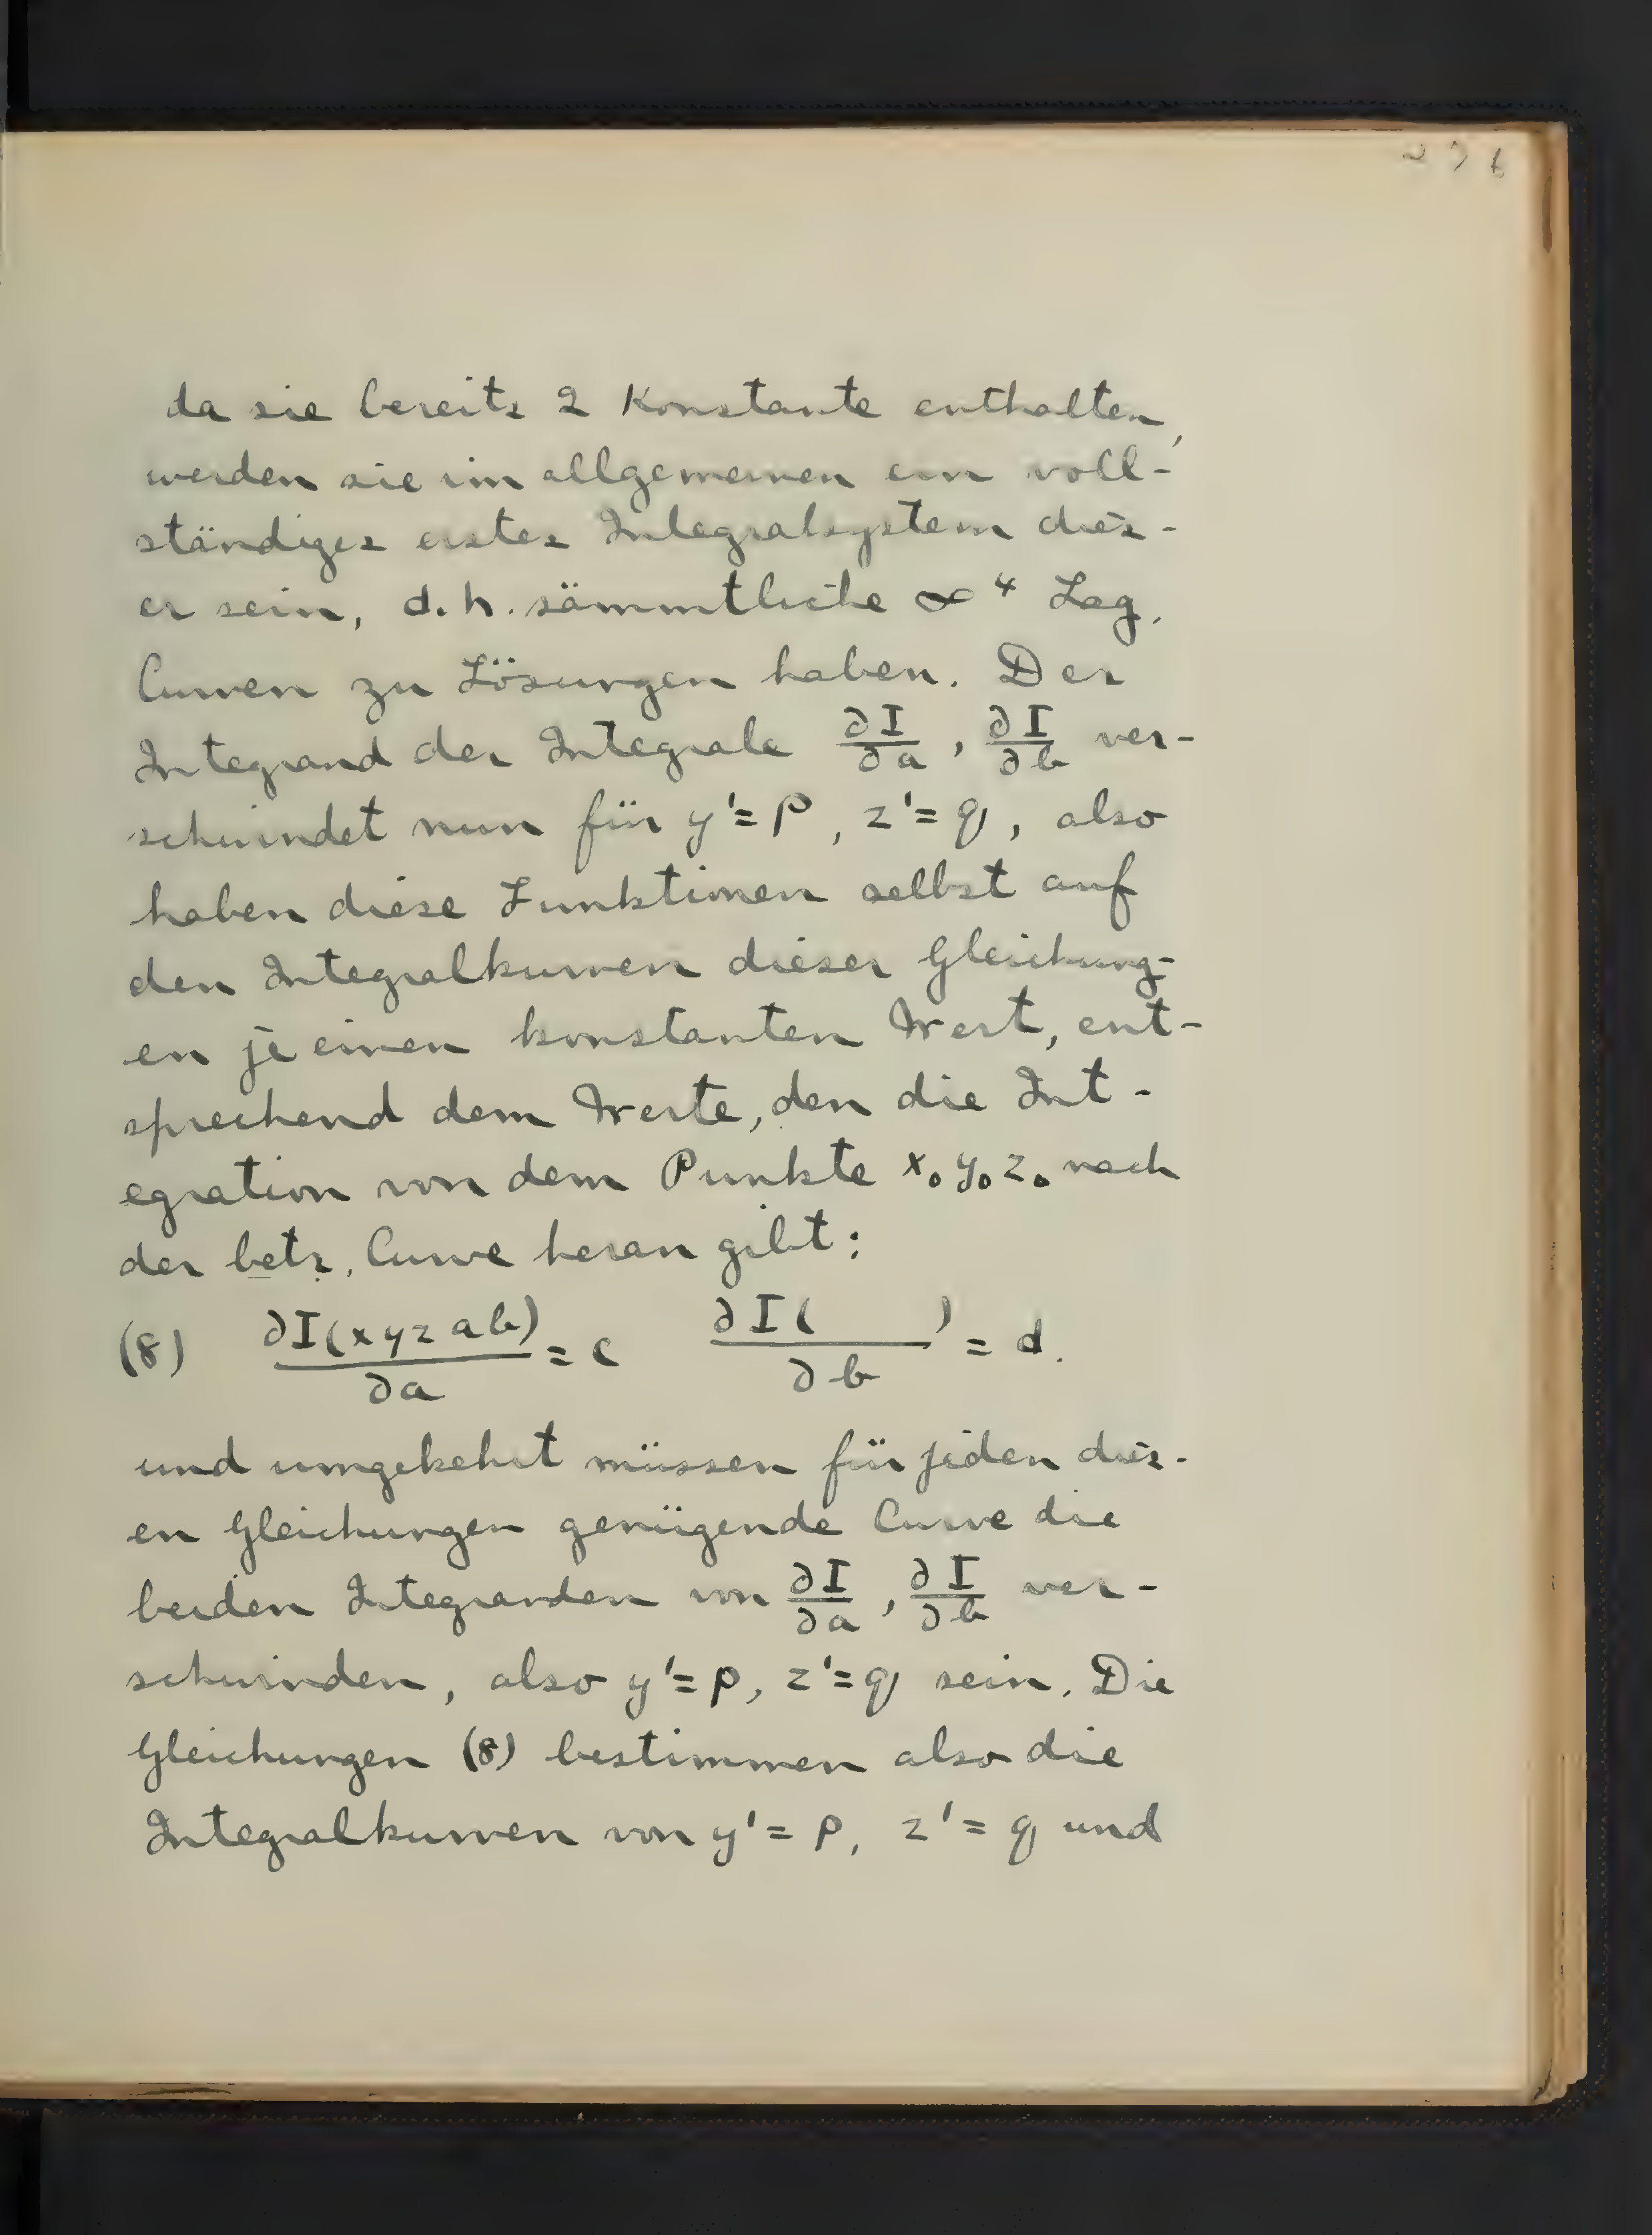 276
da sie bereits 2 Konstante enthalten,
werden sie im allgemeinen ein voll-
ständiges erstes Integralsystem dies-
er sein, d.h. sämmtliche ∞⁴ Lag.
Curven zu Lösungen haben. Der
Integrand der Integrale ∂I/∂a, ∂I/∂b ver-
schwindet nun für y'=p, z'=q, also
haben diese Funktionen selbst auf
den Integralkurven dieser Gleichung-
en je einen konstanten Wert, ent-
sprechend dem Werte, den die Int-
egration von dem Punkte x₀y₀z₀ nach
der betr. Curve heran gibt:
(8) ∂I(xyzab)/∂a = c ∂I( )/∂b = d.
und umgekehrt müssen für jeden dies-
en Gleichungen genügende Curve die
beiden Integranden von ∂I/∂a, ∂I/∂b ver-
schwinden, also y'=p, z'=q sein. Die
Gleichungen (8) bestimmen also die
Integralkurven von y'=p, z'=q und